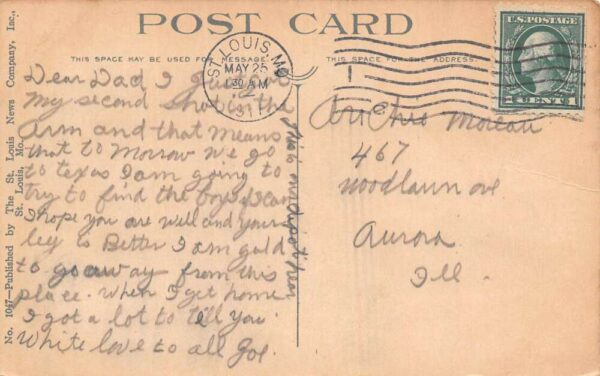 POST CARD
THIS SPACE MAY BE USED FOR MESSAGE.
THIS SPACE FOR THE ADDRESS.
ST. LOUIS, MO.
MAY 25
130 AM
191
U.S. POSTAGE
1 CENT 1
Dear Dad I Just got
my second shot in the
arm and that means
that to morrow we go
to texas I am going to
try to find the boys I can
I hope you are well and your
leg is Better I am gald
to go away from this
place. When I get home
I got a lot to tell you.
White love to all Joe.
this
Archie Moreau
467
Woodlawn ave
Aurora
Ill.
No. 1047—Published by The St. Louis News Company, Inc.,
St. Louis, Mo.